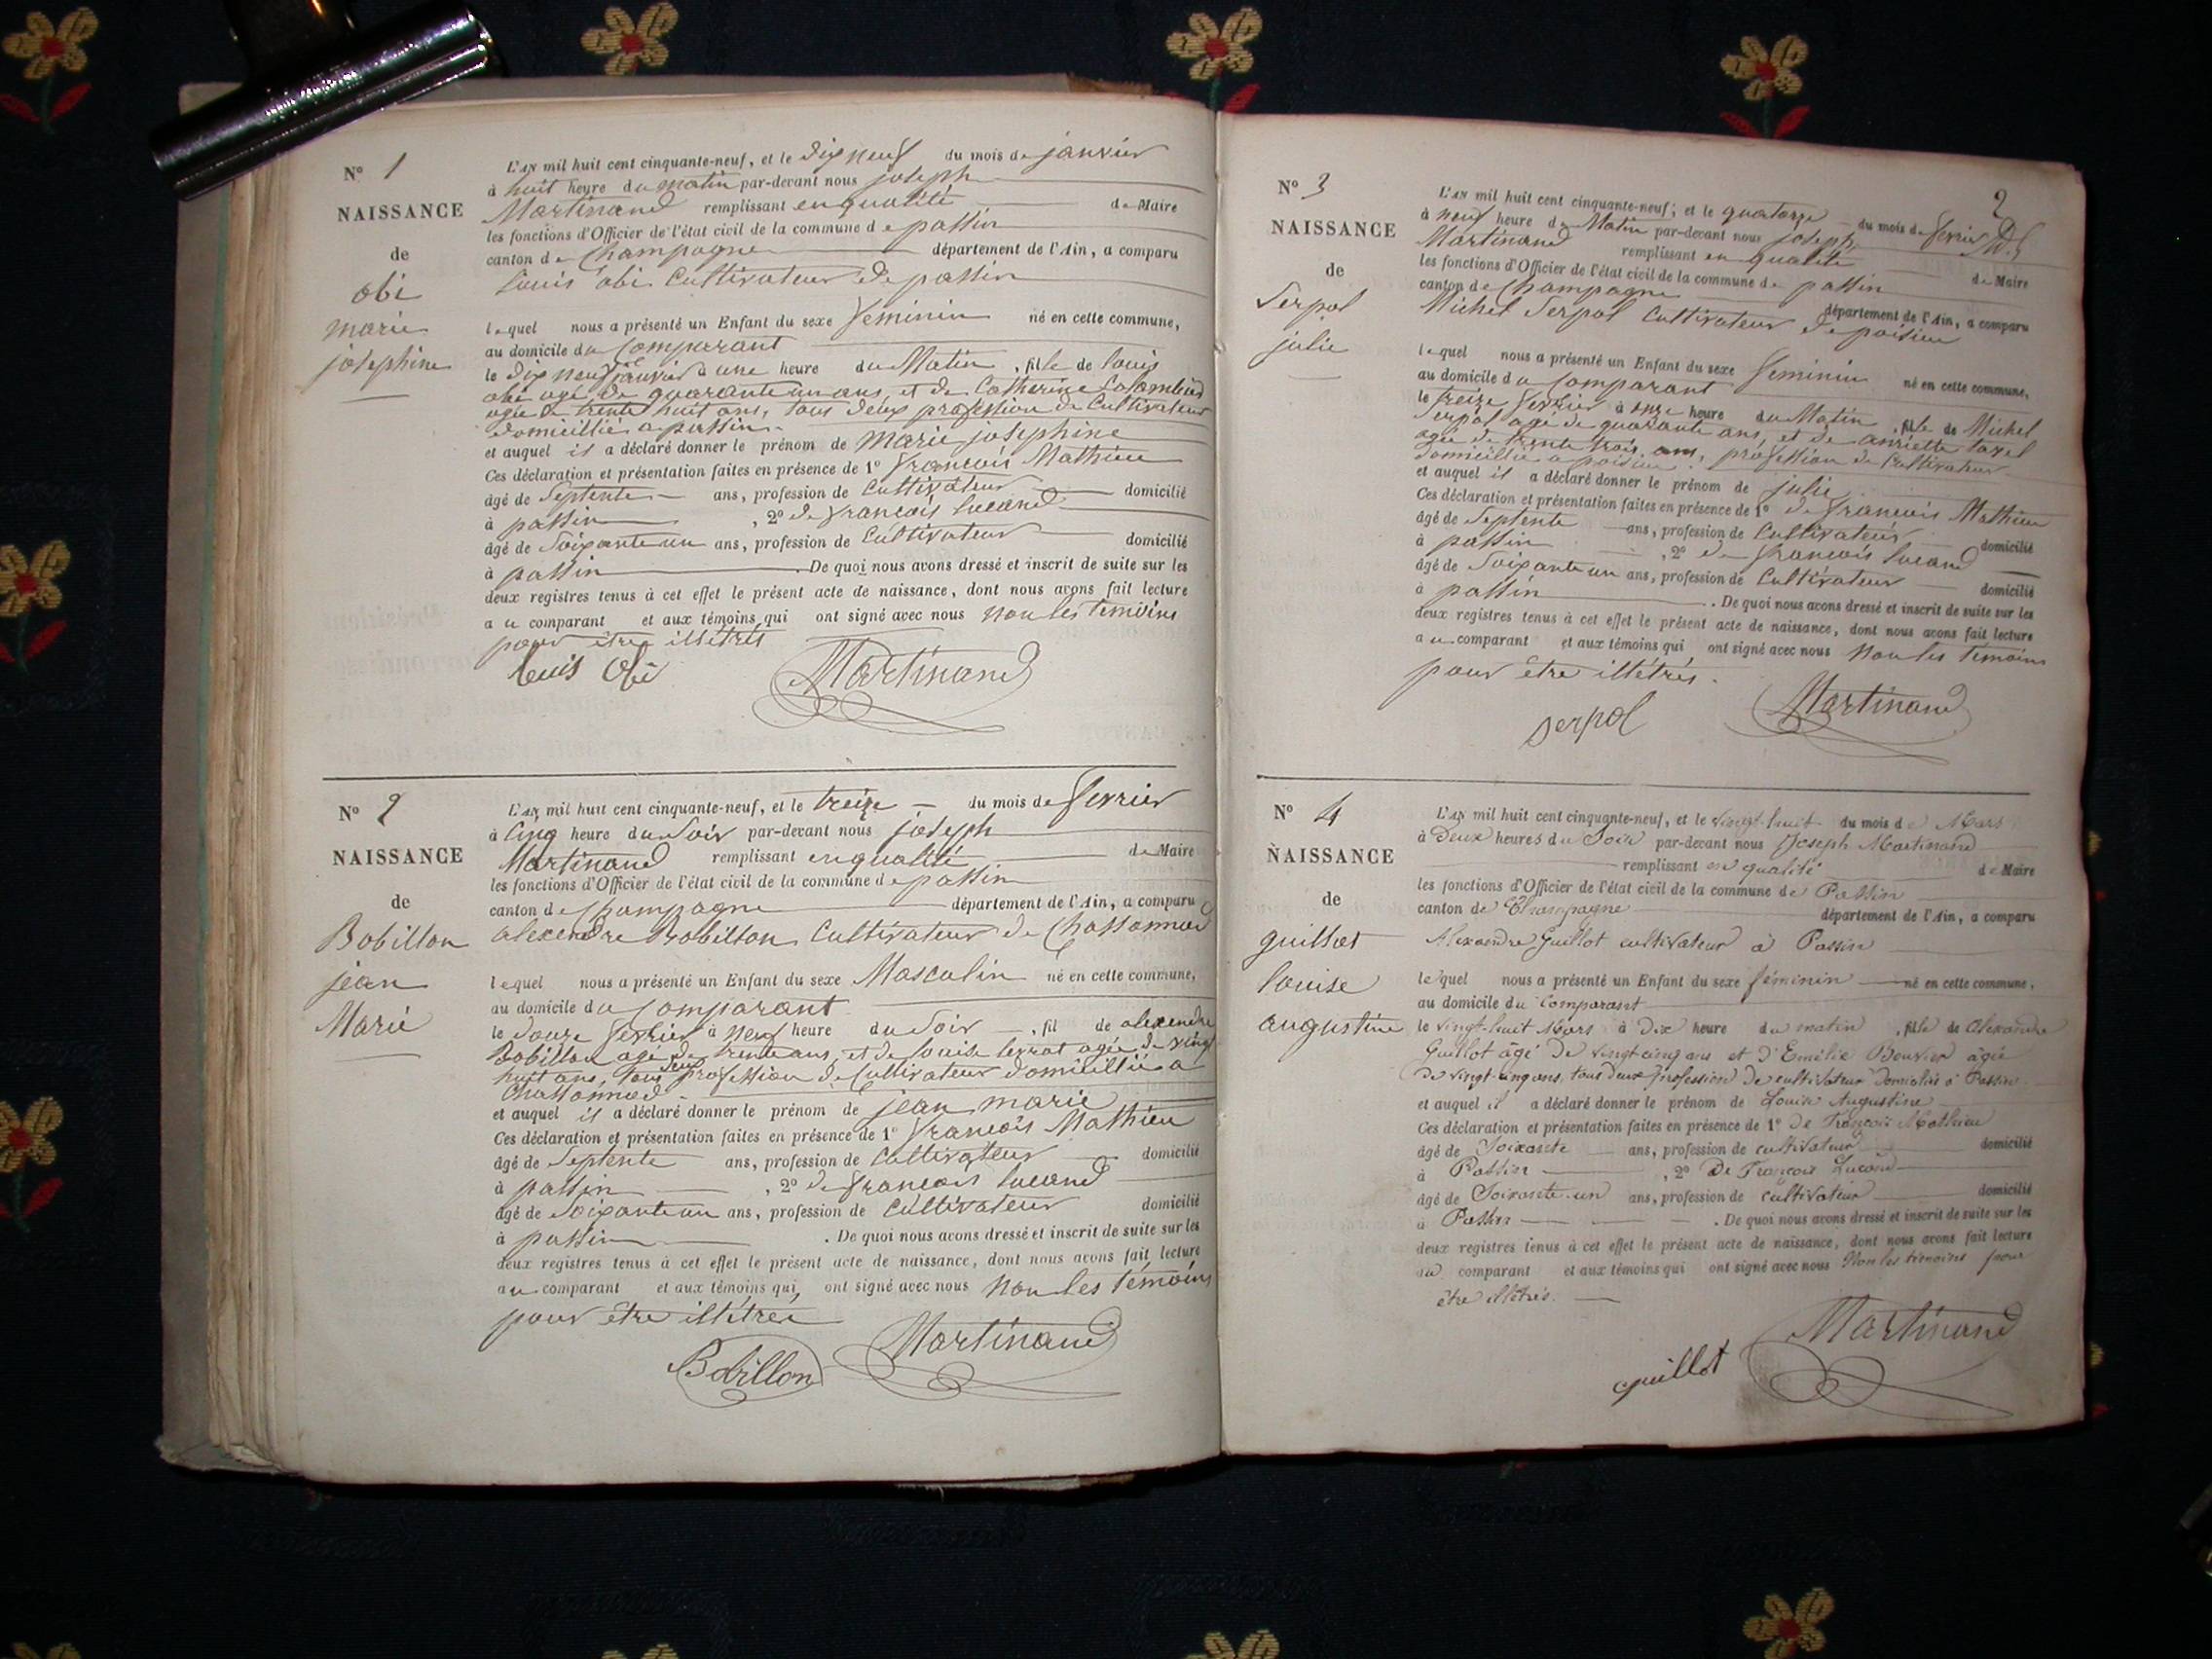 N° 1
NAISSANCE
de
obi
marie
josephine
L'AN mil huit cent cinquante-neuf, et le dix neuf du mois de janvier
à huit heure du matin par-devant nous joseph
Martinand remplissant en qualité de Maire
les fonctions d'Officier de l'état civil de la commune de passin
canton de Champagne département de l'Ain, a comparu
Louis obi Cultivateur de passin
lequel nous a présenté un Enfant du sexe feminin né en cette commune,
au domicile du Comparant
le dix neuf janvier à une heure du Matin, fille de louis
obi agé de quarante un ans, et de Catherine
agée de trente huit ans, tous deux profession de Cultivateur
domicillié a passin
et auquel il a déclaré donner le prénom de Marie josephine
Ces déclaration et présentation faites en présence de 1° francois Mathieu
âgé de Septente ans, profession de Cultivateur domicilié
à passin, 2° de francois lucand
âgé de Soixante un ans, profession de Cultivateur domicilié
à passin. De quoi nous avons dressé et inscrit de suite sur les
deux registres tenus à cet effet le présent acte de naissance, dont nous avons fait lecture
au comparant et aux témoins qui ont signé avec nous Non les temoins
pour être illétrés
louis Obi Martinand
N° 2
NAISSANCE
de
Bobillon
jean
Marie
L'AN mil huit cent cinquante-neuf, et le treize du mois de fevrier
à Cinq heure du Soir par-devant nous joseph
Martinand remplissant en qualité de Maire
les fonctions d'Officier de l'état civil de la commune de passin
canton de Champagne département de l'Ain, a comparu
alexendre Bobillon Cultivateur de Chassonnod
lequel nous a présenté un Enfant du sexe Masculin né en cette commune,
au domicile du Comparant
le douze fevrier à neuf heure du Soir, fil de alexendre
Bobillon agé de trente ans, et de louise levrat agée de vingt
huit ans, tous deux profession de Cultivateur domicillié a
Chassonnod.
et auquel il a déclaré donner le prénom de jean marie
Ces déclaration et présentation faites en présence de 1° francois Mathieu
âgé de Septente ans, profession de Cultivateur domicilié
à passin, 2° de francois lucand
âgé de Soixante un ans, profession de Cultivateur domicilié
à passin. De quoi nous avons dressé et inscrit de suite sur les
deux registres tenus à cet effet le présent acte de naissance, dont nous avons fait lecture
au comparant et aux témoins qui, ont signé avec nous Non les témoins
pour être illétrés
Bobillon Martinand
2
N° 3
NAISSANCE
de
Serpol
julie
L'AN mil huit cent cinquante-neuf; et le quatorze du mois de fevrier
à neuf heure du Matin par-devant nous joseph
Martinand remplissant en qualité de Maire
les fonctions d'Officier de l'état civil de la commune de passin
canton de Champagne département de l'Ain, a comparu
Michel Serpol Cultivateur de poisieu
lequel nous a présenté un Enfant du sexe feminin né en cette commune,
au domicile du Comparant
le treize fevrier à onze heure du Matin, fille de Michel
Serpol agé de quarante ans, et de anriette tavel
agée de trente trois ans, profession de Cultivateur
domicillié a poisieu.
et auquel il a déclaré donner le prénom de julie
Ces déclaration et présentation faites en présence de 1° de francois Mathieu
âgé de Septente ans, profession de Cultivateur domicilié
à passin, 2° de francois lucand
âgé de Soixante un ans, profession de Cultivateur domicilié
à passin. De quoi nous avons dressé et inscrit de suite sur les
deux registres tenus à cet effet le présent acte de naissance, dont nous avons fait lecture
au comparant et aux témoins qui ont signé avec nous Non les temoins
pour être illétrés.
serpol Martinand
N° 4
NAISSANCE
de
guillot
louise
augustine
L'AN mil huit cent cinquante-neuf, et le vingt-huit du mois de Mars
à Deux heures du Soir par-devant nous Joseph Martinand
remplissant en qualité de Maire
les fonctions d'Officier de l'état civil de la commune de Passin
canton de Champagne département de l'Ain, a comparu
Alexandre Guillot cultivateur à Passin
lequel nous a présenté un Enfant du sexe féminin né en cette commune,
au domicile du Comparant
le vingt-huit Mars à Dix heure du matin, fille de Alexandre
Guillot âgé de vingt-cinq ans et d'Emélie Bouvier âgée
de vingt-cinq ans, tous deux profession de cultivateur domiciliés à Passin
et auquel il a déclaré donner le prénom de Louise Augustine
Ces déclaration et présentation faites en présence de 1° de François Mathieu
âgé de Soixante ans, profession de cultivateur domicilié
à Passin, 2° De François Lucand
âgé de Soixante-un ans, profession de cultivateur domicilié
à Passin. De quoi nous avons dressé et inscrit de suite sur les
deux registres tenus à cet effet le présent acte de naissance, dont nous avons fait lecture
au comparant et aux témoins qui ont signé avec nous Non les témoins pour
être illétrés.
guillot Martinand